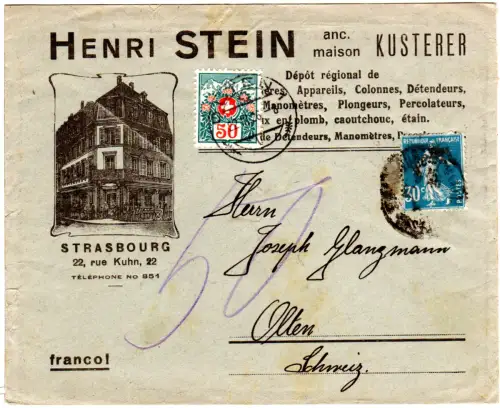 HENRI STEIN anc. maison KUSTERER
Dépôt régional de
Appareils, Colonnes, Détendeurs,
Manomètres, Plongeurs, Percolateurs,
en plomb, caoutchouc, étain.
de Détendeurs, Manomètres,
50
REPUBLIQUE FRANÇAISE
30c
POSTES
STRASBOURG
22, rue Kuhn, 22
TÉLÉPHONE NO 851
50
Herrn
Joseph Glanzmann
Olten
Schweiz.
franco!